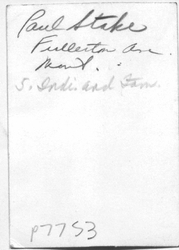 Paul Stake
Fullerton Ave.
Mont.
5. Indis and Fam.
P7753